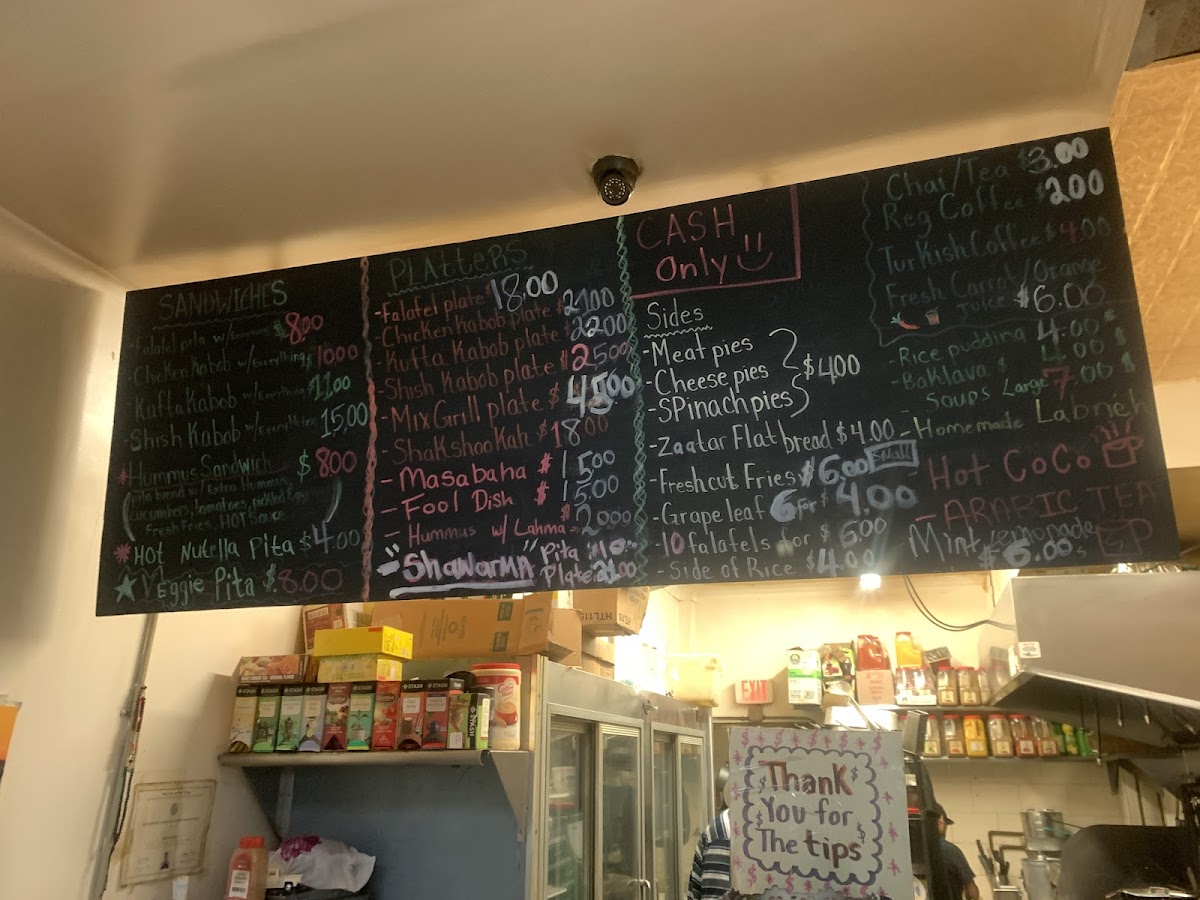 SANDWICHES
-Falafel pita w/Everything $8.00
-Chicken Kabob w/Everything $1000
-Kufta Kabob w/Everything $11.00
-Shish Kabob w/Everything 15,00
*Hummus Sandwich $800
(pita bread w/ Extra Hummus,
cucumbers, tomatoes, pickled Eggs
Fresh Fries, HOT Sauce)
*HOT Nutella Pita $4.00
Veggie Pita $8.00
PLAttERS
-Falafel plate $18.00
-Chicken Kabob plate $2100
-Kufta Kabob plate $2200
-Shish Kabob plate $2500
-Mix Grill plate $45.00
-ShaKshooKah $18.00
-Masabaha $15.00
-Fool Dish $15.00
-Hummus w/ Lahma-
"ShawarMA" Pita
Plate
CASH
Only
Sides
-Meat pies
-Cheese pies } $400
-SPinach pies
-Zaatar Flat bread $4.00
-Fresh cut Fries $6.00 SMALL
-Grape leaf 6 For $4.00
-10 falafels for $6.00
-Side of Rice $4.00
Chai/Tea $3.00
Reg Coffee $200
TurKish Coffee $4.00
Fresh Carrot/Orange
Juice $6.00
-Rice pudding 4.00
-Baklava $4.00
-SOUPS Large 7.00
-Homemade Labneh
Hot CoCo
-ARABIC TEA
Mint Lemonade
$6.00
EXIT
STASH
STASH
STASH
STASH
STASH
STASH
STASH
STASH
Thank
You for
The tips